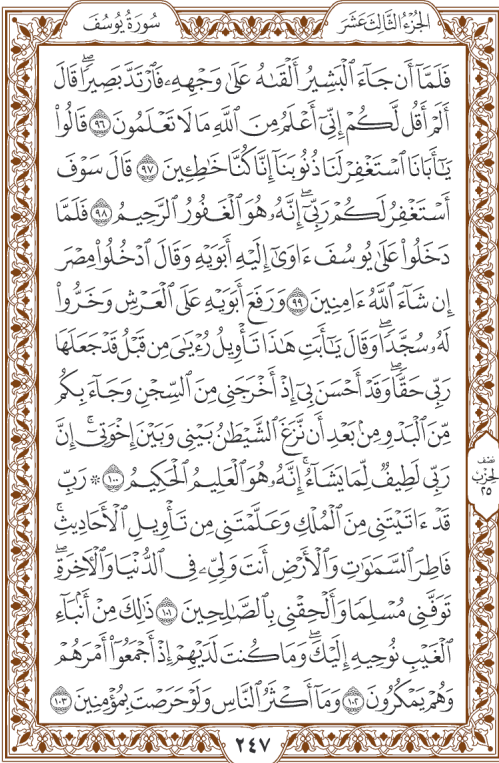 الجُزْءُ الثَّالِثَ عَشَرَ
سُورَةُ يُوسُفَ
فَلَمَّآ أَن جَآءَ ٱلْبَشِيرُ أَلْقَىٰهُ عَلَىٰ وَجْهِهِۦ فَٱرْتَدَّ بَصِيرًاۖ قَالَ
أَلَمْ أَقُل لَّكُمْ إِنِّيٓ أَعْلَمُ مِنَ ٱللَّهِ مَا لَا تَعْلَمُونَ ٩٦ قَالُوا۟
يَـٰٓأَبَانَا ٱسْتَغْفِرْ لَنَا ذُنُوبَنَآ إِنَّا كُنَّا خَـٰطِـِٔينَ ٩٧ قَالَ سَوْفَ
أَسْتَغْفِرُ لَكُمْ رَبِّيٓۖ إِنَّهُۥ هُوَ ٱلْغَفُورُ ٱلرَّحِيمُ ٩٨ فَلَمَّا
دَخَلُوا۟ عَلَىٰ يُوسُفَ ءَاوَىٰٓ إِلَيْهِ أَبَوَيْهِ وَقَالَ ٱدْخُلُوا۟ مِصْرَ
إِن شَآءَ ٱللَّهُ ءَامِنِينَ ٩٩ وَرَفَعَ أَبَوَيْهِ عَلَى ٱلْعَرْشِ وَخَرُّوا۟
لَهُۥ سُجَّدًاۖ وَقَالَ يَـٰٓأَبَتِ هَـٰذَا تَأْوِيلُ رُءْيَـٰيَ مِن قَبْلُ قَدْ جَعَلَهَا
رَبِّي حَقًّاۖ وَقَدْ أَحْسَنَ بِيٓ إِذْ أَخْرَجَنِي مِنَ ٱلسِّجْنِ وَجَآءَ بِكُم
مِّنَ ٱلْبَدْوِ مِنۢ بَعْدِ أَن نَّزَغَ ٱلشَّيْطَـٰنُ بَيْنِي وَبَيْنَ إِخْوَتِيٓۚ إِنَّ
رَبِّي لَطِيفٌ لِّمَا يَشَآءُۚ إِنَّهُۥ هُوَ ٱلْعَلِيمُ ٱلْحَكِيمُ ١٠٠ ۞ رَبِّ
قَدْ ءَاتَيْتَنِي مِنَ ٱلْمُلْكِ وَعَلَّمْتَنِي مِن تَأْوِيلِ ٱلْأَحَادِيثِۚ
فَاطِرَ ٱلسَّمَـٰوَٰتِ وَٱلْأَرْضِ أَنتَ وَلِيِّۦ فِي ٱلدُّنْيَا وَٱلْـَٔاخِرَةِۖ
تَوَفَّنِي مُسْلِمًا وَأَلْحِقْنِي بِٱلصَّـٰلِحِينَ ١٠١ ذَٰلِكَ مِنْ أَنۢبَآءِ
ٱلْغَيْبِ نُوحِيهِ إِلَيْكَۖ وَمَا كُنتَ لَدَيْهِمْ إِذْ أَجْمَعُوٓا۟ أَمْرَهُمْ
وَهُمْ يَمْكُرُونَ ١٠٢ وَمَآ أَكْثَرُ ٱلنَّاسِ وَلَوْ حَرَصْتَ بِمُؤْمِنِينَ ١٠٣
نِصْف
الحِزْب
٢٥
٢٤٧